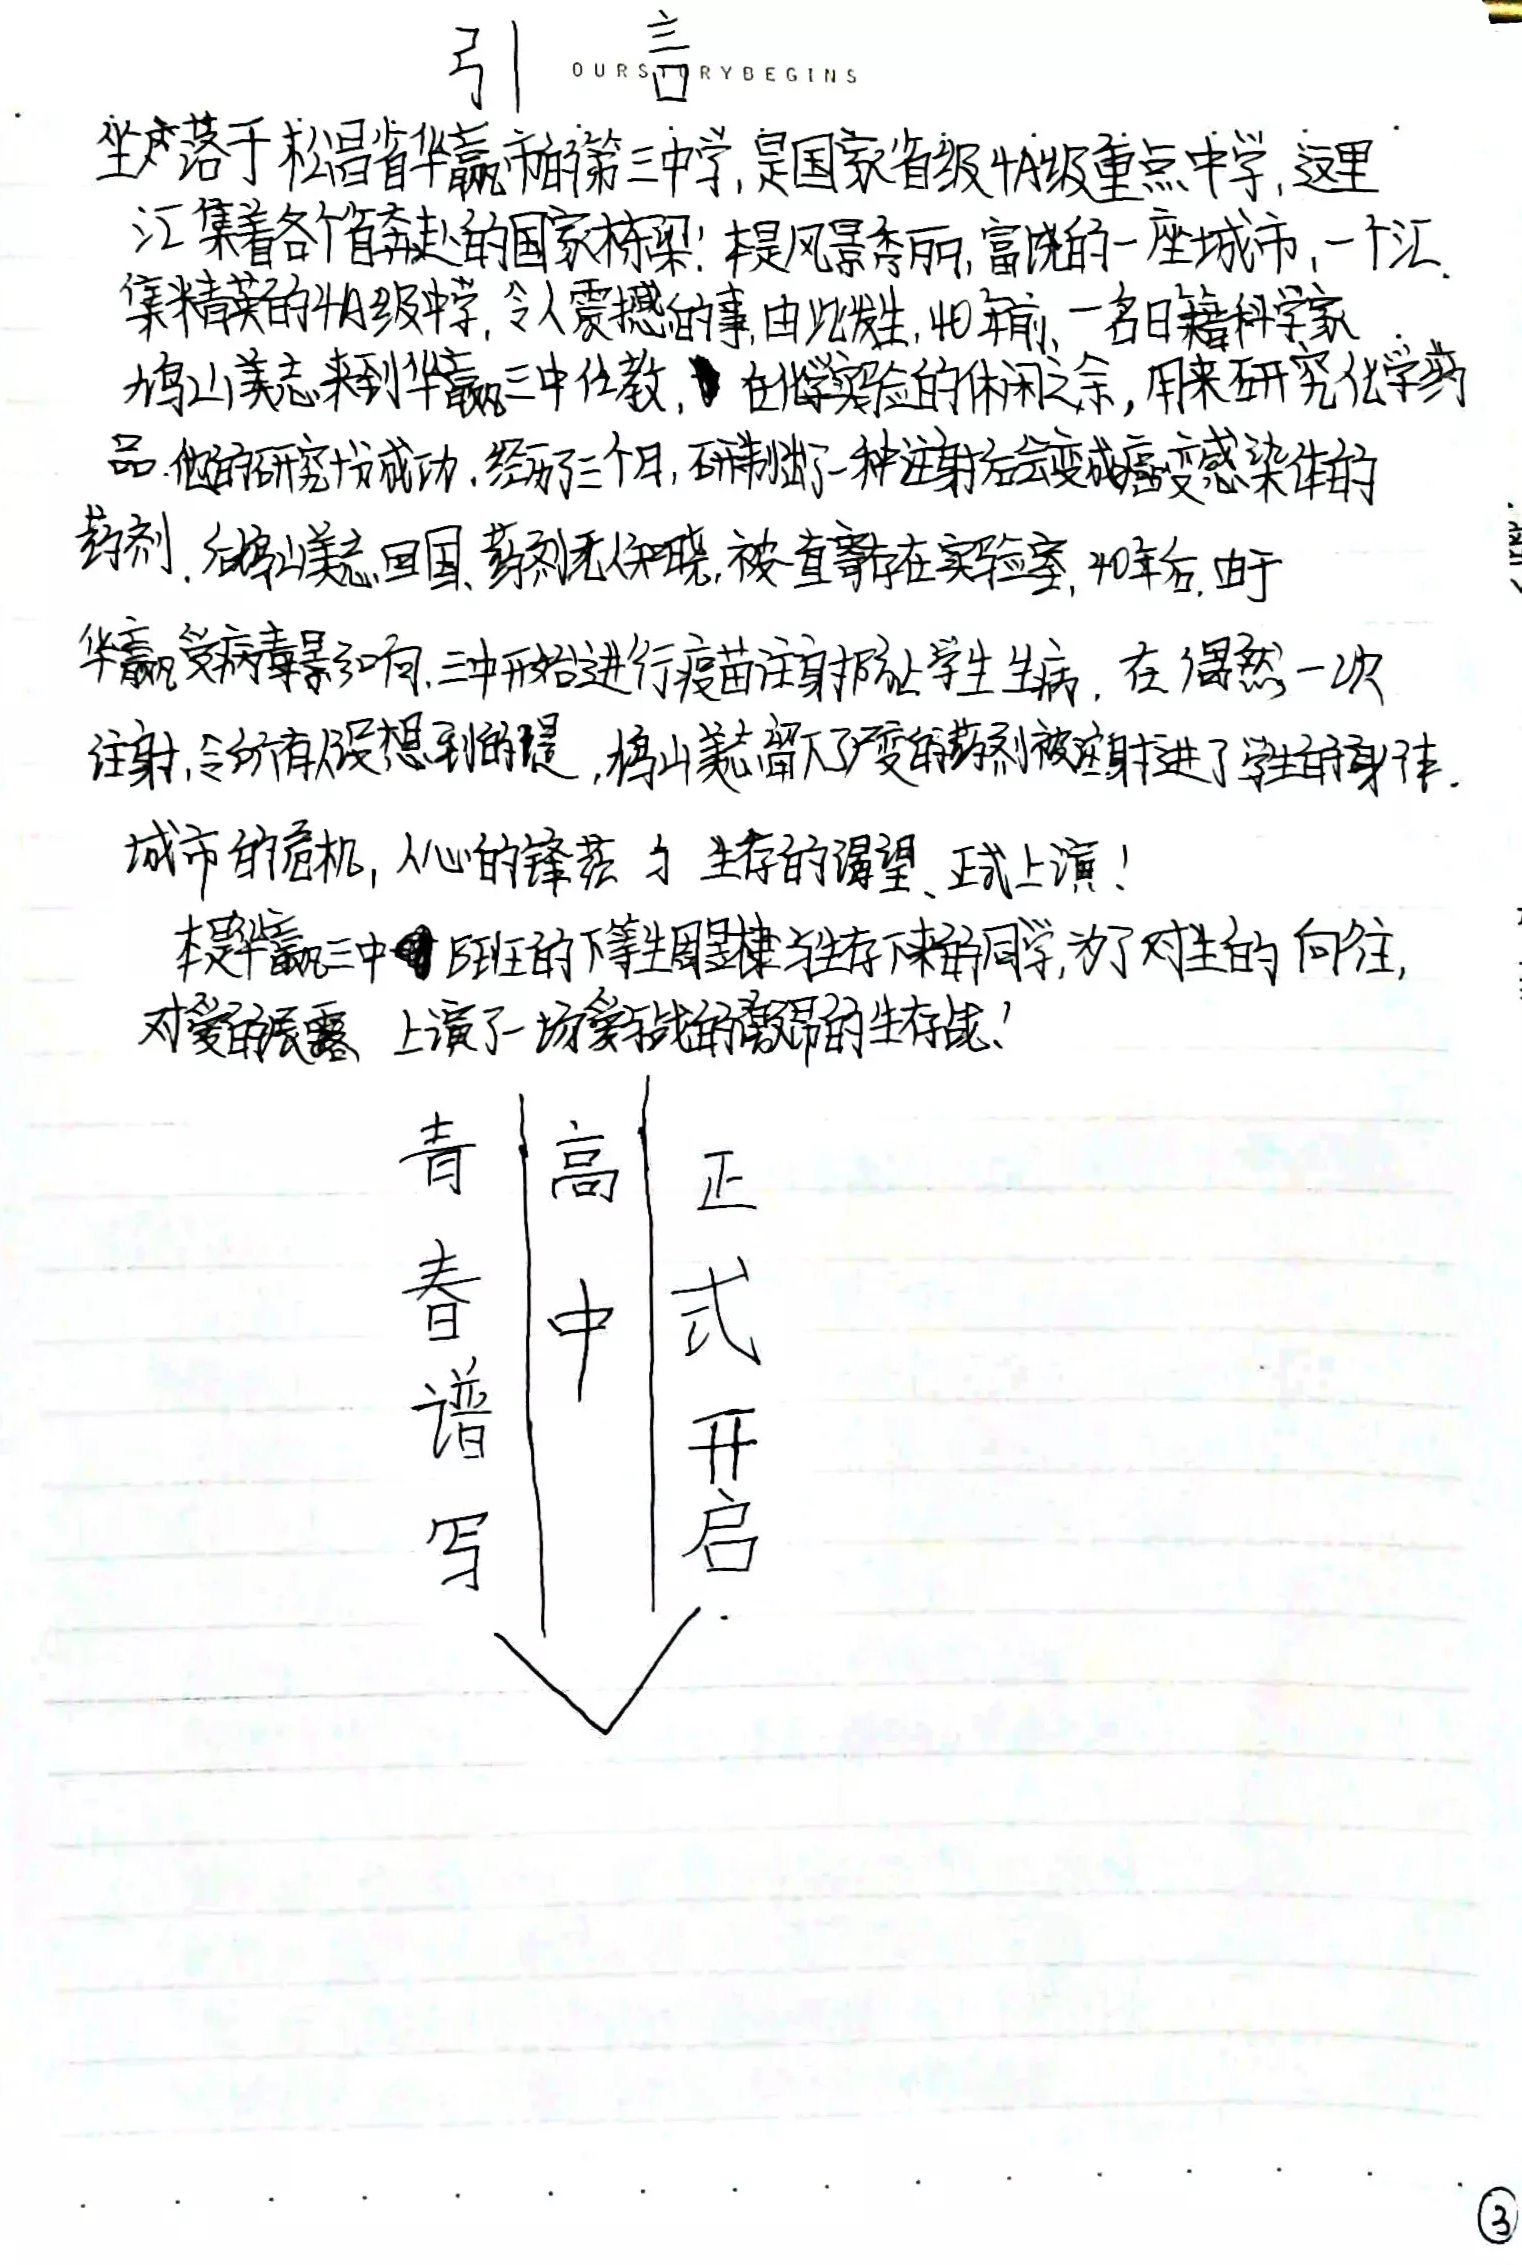 引言
OURSTORYBEGINS
坐落于松昌省华赢市的第三中学,是国家省级4A级重点中学,这里
汇集着各个省奔赴的国家栋梁!本是风景秀丽,富饶的一座城市,一个汇
集精英的4A级中学,令人震撼的事,由此发生,40年前,一名日籍科学家
鸠山美志来到华赢三中任教,在化学实验的休闲之余,用来研究化学药
品.他的研究十分成功.经历了三个月,研制出了一种注射后会变成癌变感染体的
药剂.后鸠山美志回国、药剂无人知晓,被一直寄存在实验室,40年后.由于
华赢受病毒影响,三中开始进行疫苗注射防止学生生病.在偶然一次
注射,令所有人没想到的是,鸠山美志留下了产变的药剂被注射进了学生的身体.
城市的危机,人心的锋芒与生存的渴望、正式上演!
本是华赢三中 班的下等生周昱棣与生存下来的同学,为了对生的向往,
对爱的展露、上演了一场 的生存战!
青春谱写
高中
正式开启.
3